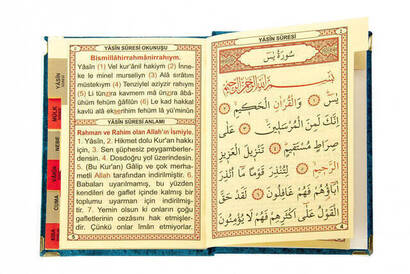 YÂSİN SÛRESİ OKUNUŞU
Bismillâhirrahmânirrahıym.
Yâsîn (1) Vel kur'ânil hakiym (2) İnne-
ke le minel murseliyn (3) Alâ sırâtım
müstekıym (4) Tenziylel aziyzir rahıym
(5) Li tünzira kavmem mâ ünzira âbâ-
ühüm fehüm ğâfilûn (6) Le kad hakkal
kavlü alâ ekserihim fehüm lâ yü'minûn
YÂSİN SÛRESİ ANLAMI
Rahman ve Rahim olan Allah'ın İsmiyle.
1. Yâsîn, 2. Hikmet dolu Kur'an hakkı
için, 3. Sen şüphesiz peygamberler-
densin. 4. Dosdoğru yol üzerindesin.
5. (Bu Kur'an) Gâlip, çok merha-
metli Allah tarafından indirilmiştir. 6.
Babaları uyarılmamış, bu yüzden
kendileri de gaflet içinde kalmış bir
toplumu uyarman için indirilmiş-
tir. 7. Yemin olsun ki onların çoğu
gafletlerinin cezasını hak etmişler-
dir. Çünkü onlar îman etmiyorlar.
YÂSİN
MÜLK
NEBE
CUMA
سُورَةُ يٰسٓ
بِسْمِ اللّٰهِ الرَّحْمٰنِ الرَّحِيمِ
يٰسٓ ﴿١﴾ وَالْقُرْاٰنِ الْحَكِيمِ ﴿٢﴾
اِنَّكَ لَمِنَ الْمُرْسَلِينَ ﴿٣﴾ عَلٰى
صِرَاطٍ مُسْتَقِيمٍ ﴿٤﴾ تَنْزِيلَ الْعَزِيزِ
الرَّحِيمِ ﴿٥﴾ لِتُنْذِرَ قَوْمًا مَٓا اُنْذِرَ
اٰبَٓاؤُهُمْ فَهُمْ غَافِلُونَ ﴿٦﴾ لَقَدْ حَقَّ
الْقَوْلُ عَلٰٓى اَكْثَرِهِمْ فَهُمْ لَا يُؤْمِنُونَ
4